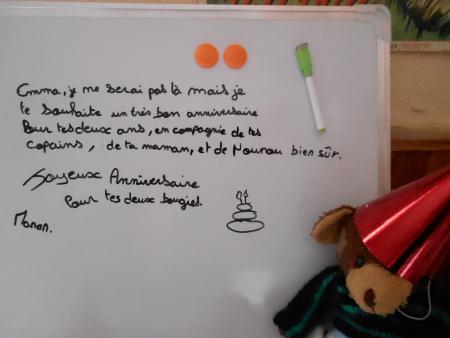 Emma, je ne serai pas là mais je
te souhaite un très bon anniversaire
Pour tes deux ans, en compagnie de tes
copains, de ta maman, et de Nounou bien sûr.
Joyeux Anniversaire
Pour tes deux bougies.
Manon.